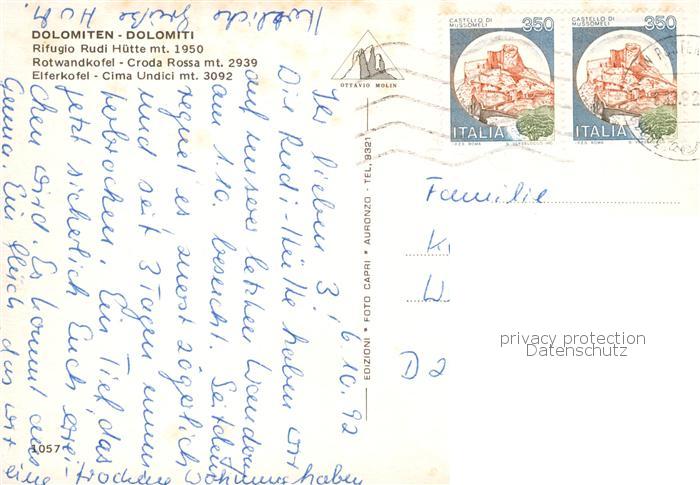 DOLOMITEN - DOLOMITI
Rifugio Rudi Hütte mt. 1950
Rotwandkofel - Croda Rossa mt. 2939
Elferkofel - Cima Undici mt. 3092
OTTAVIO MOLIN
CASTELLO DI MUSSOMELI
350
ITALIA
CASTELLO DI MUSSOMELI
350
ITALIA
EDIZIONI * FOTO CAPRI * AURONZO - TEL. 9321
1057
6.10.92
Ihr lieben 3!
Die Rudi-Hütte haben wir
auf unserer letzten Wanderung
am 1.10. besucht. Seitdem
regnet es, zuerst zögerlich
und seit 3 Tagen ununter-
brochen. Ein Tief, das
jetzt sicherlich Euch errei-
chen wird. Es kommt aus
Genua. Ein Glück das wir
eine trockene Wohnung haben
Herzliche Grüße
H u M.
Familie
K
W
D 2
privacy protection
Datenschutz